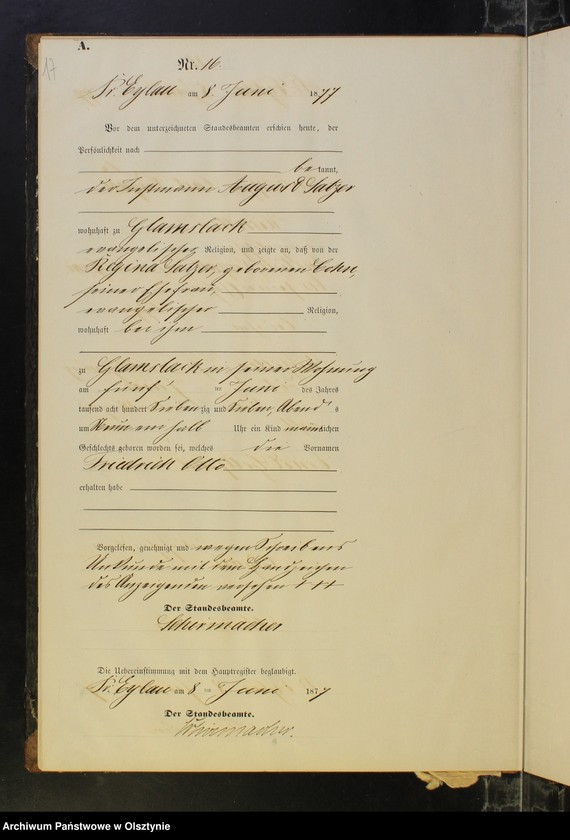 A.
17
Nr. 16.
Dt. Eylau am 8. Juni 1877
Vor dem unterzeichneten Standesbeamten erschien heute, der
Persönlichkeit nach
bekannt,
der Instmann August Salzer
wohnhaft zu
evangelischer Religion, und zeigte an, daß von der
Regina Salzer, geborenen
seiner Ehefrau,
evangelischer Religion,
wohnhaft bei ihm
zu in seiner Wohnung
am fünf ten Juni des Jahres
tausend acht hundert sieben zig und sieben, Abend s
um Neun ein halb Uhr ein Kind männlichen
Geschlechts geboren worden sei, welches die Vornamen
Friedrich Otto
erhalten habe
Vorgelesen, genehmigt und wegen Schreibens
Unkunde mit dem Handzeichen
des Anzeigenden versehen +++
Der Standesbeamte.
Schirmacher
Die Uebereinstimmung mit dem Hauptregister beglaubigt.
Dt. Eylau am 8 ten Juni 1877
Der Standesbeamte.
Schirmacher.
Archiwum Państwowe w Olsztynie